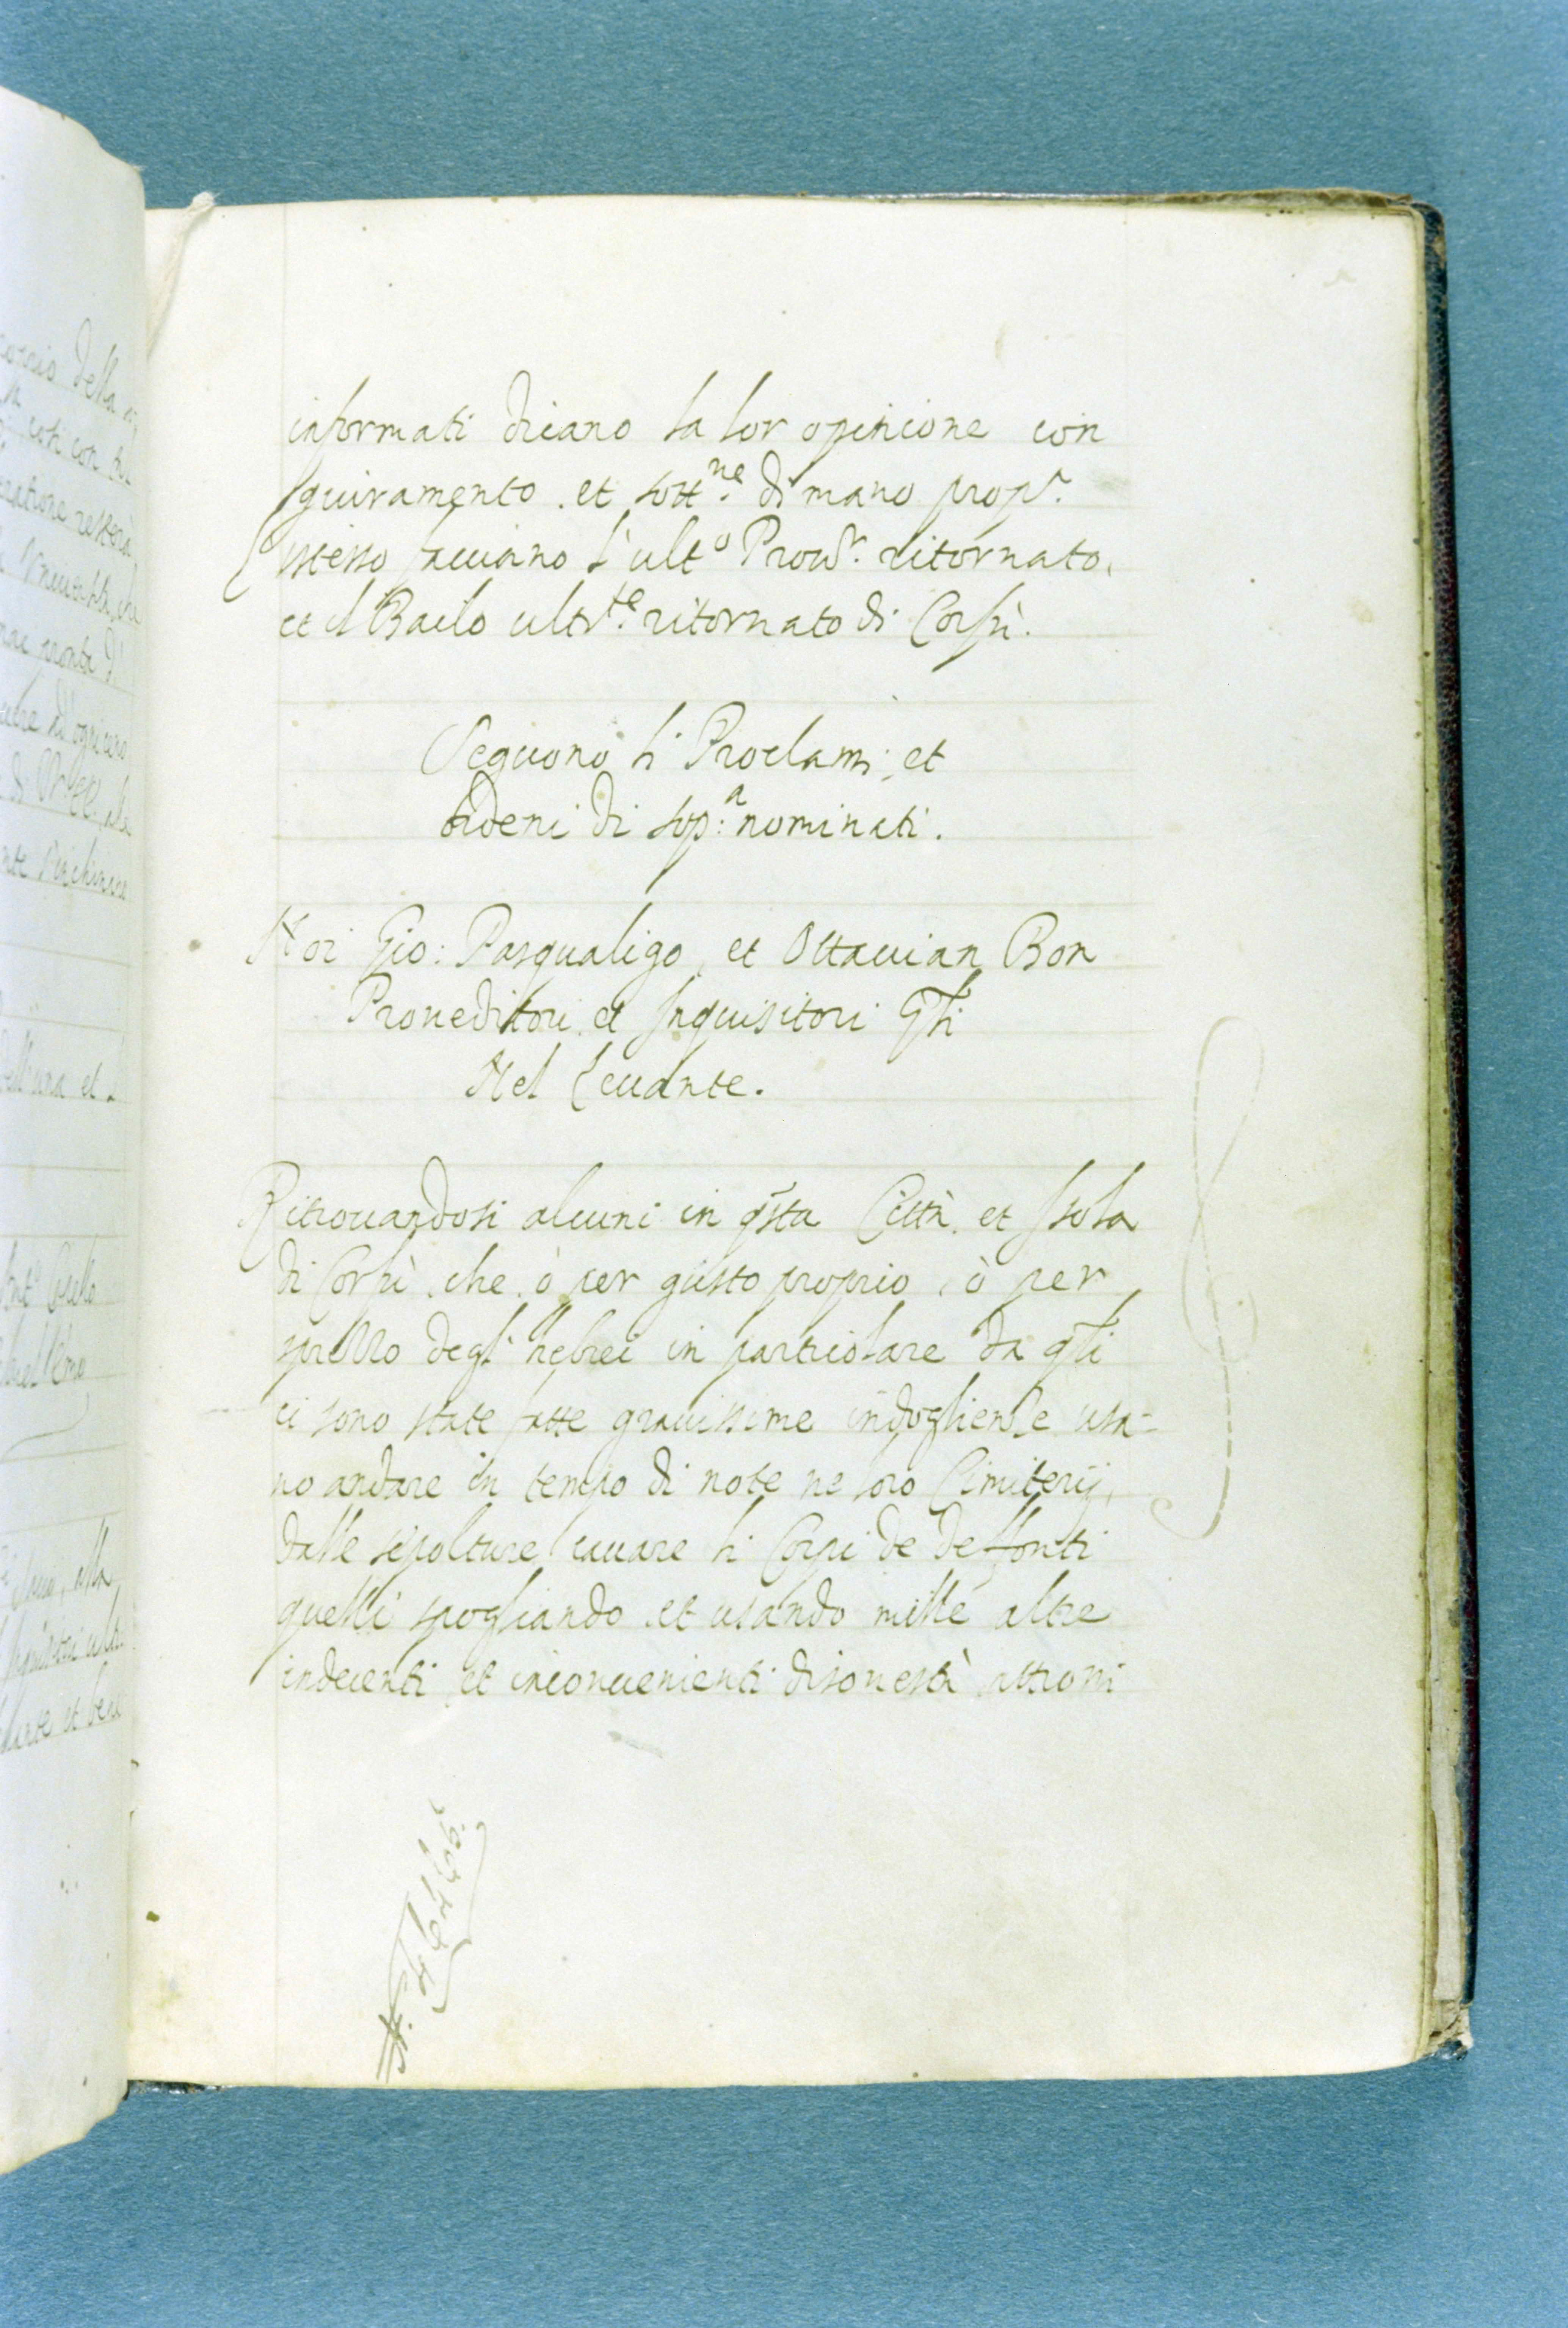 informati dicano la lor opinione con
giuramento. et sott.ne di mano prop.a
L'istesso facciano l'ult.o Prou.r ritornato,
et il Bailo ult.te ritornato di Corfù.
Seguono li Proclami, et
ordeni di sop.a nominati.
Noi Gio: Pasqualigo, et Ottauian Bon
Proueditori et Inquisitori Gñli
Nel Leuante.
Ritrouandosi alcuni in q̃sta Città et Isola
di Corfù che ò per gusto proprio, ò per
sprezzo degl'hebrei in particolare da q̃li
ci sono state fatte grauissime indoglienze usa-
no andare in tempo di note ne loro Cimiterij,
dalle sepolture cauare li Corpi de deffonti
quelli spogliando et usando mille altre
indecenti et inconuenienti disonestà attioni